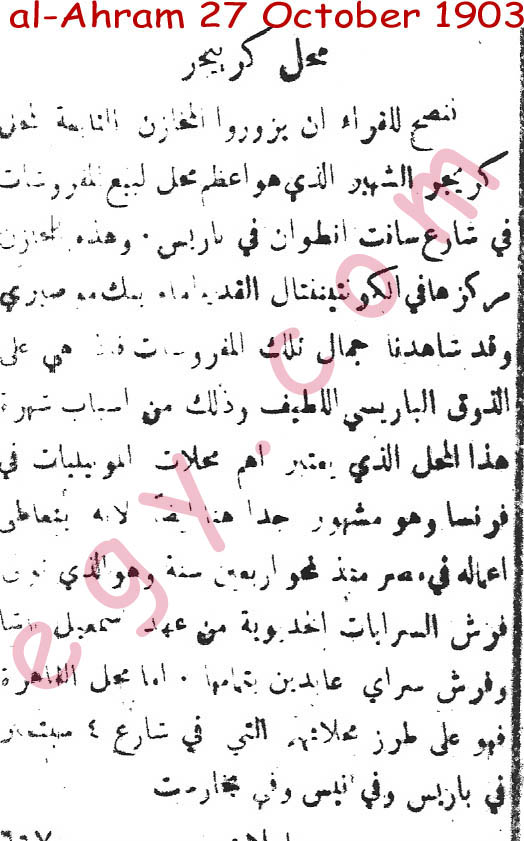 al-Ahram 27 October 1903
محل كريجر
ننصح للقراء ان يزوروا المخازن التابعة لمحل
كريجر الشهير الذي هو اعظم محل لبيع المفروشات
في شارع سانت انطوان في باريس . وهذه المخازن
مركزها في الكونتيننتال القديم امام بنك موصيري
وقد شاهدنا جمال تلك المفروشات هي على
الذوق الباريسي اللطيف وذلك من اسباب شهرة
هذا المحل الذي يعتبر اهم محلات الموبيليات في
فرنسا وهو مشهور جدا هنا ايضاً لانه يتعاطى
اعماله في مصر منذ نحو اربعين سنة وهو الذي
فرش السرايات الخديوية من عهد اسمعيل باشا
وفرش سراي عابدين بتمامها . اما محل القاهرة
فهو على طرز محلاتهم التي في شارع ٤ سبتمبر
في باريس وفي نيس وفي بخارست
egy.com